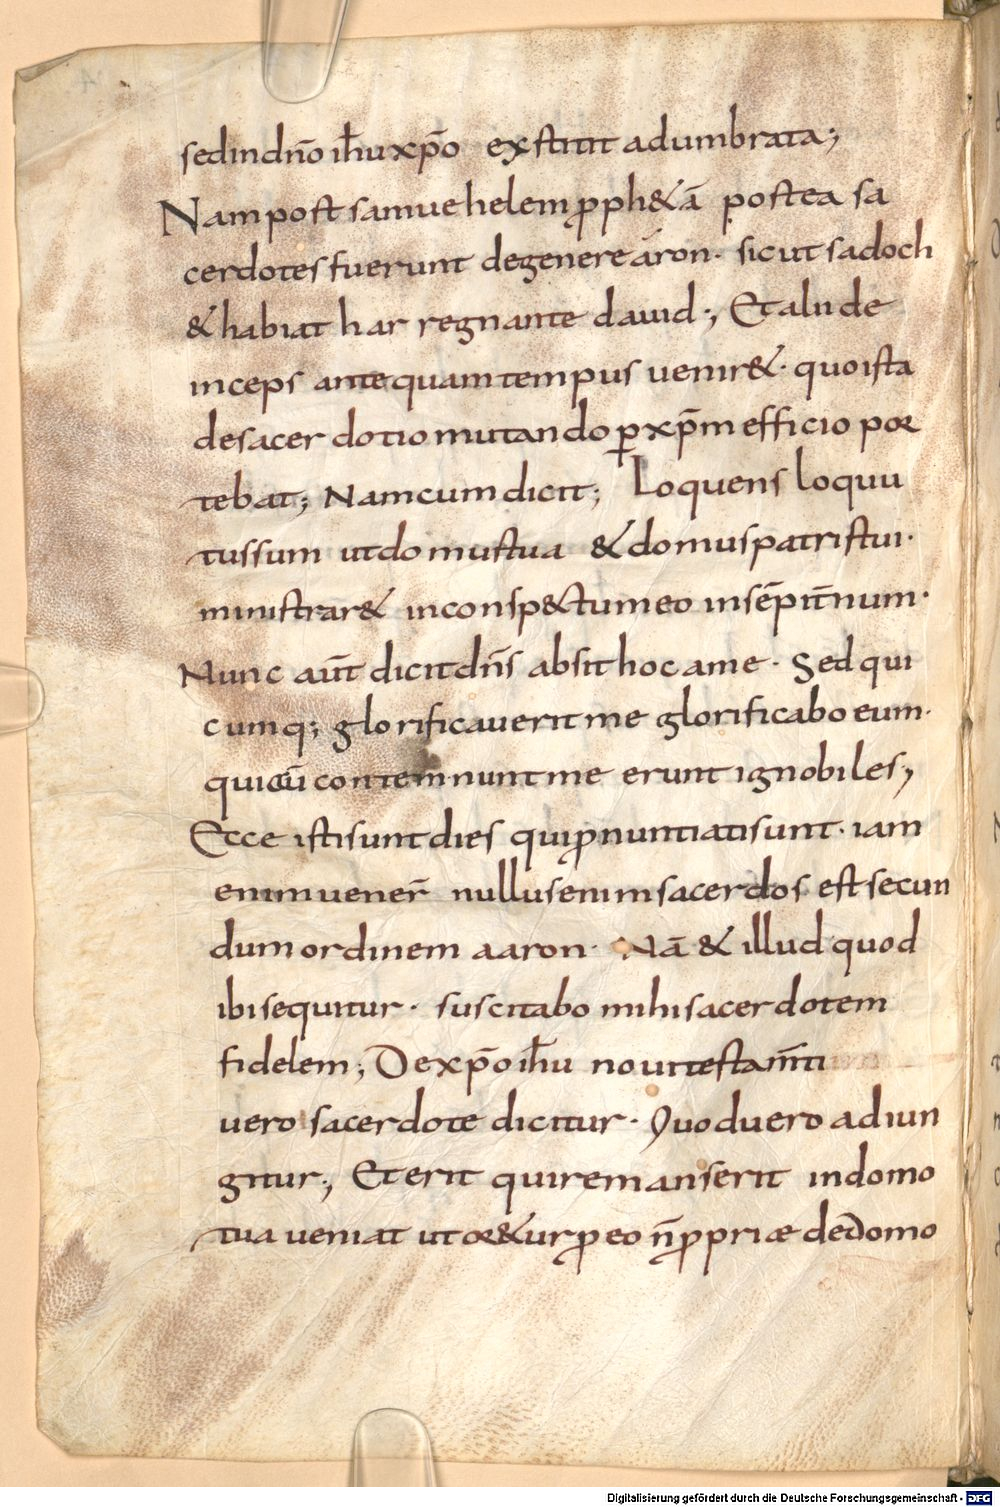 sed in dño ih̄u xp̄o extitit adumbrata;
Nam post samuehelem ꝓph&ā postea sa
cerdotes fuerunt de genere áron· sicut sadoch
& habiathar regnante dauid·, Et alii de
inceps antequam tempus uenir&· quo ista
de sacerdotio mutando ꝑ xp̄m effici opor
tebat; Nam cum dicit; Loquens loquu
tus sum ut domus tua & domus patris tui·
ministrar& in consp&tu meo in sēpit̄num·
Nunc aūt dicit dn̄s absit hoc a me· Sed qui
cumq; glorificauerit me glorificabo eum·
qui aū contemnunt me erunt ignobiles,
Ecce isti sunt dies qui ꝓnuntiati sunt· iam
enim uener̄ nullus enim sacerdos est secun
dum ordinem aaron· Nā & illud quod
ibi sequitur· suscitabo mihi sacerdotem
fidelem; De xp̄o ih̄u noui testam̄ti
uero sacerdote dicitur· Quod uero adiun
gitur·, Et erit qui remanserit in domo
tua ueniat ut or&ur ꝓ eo n̄ ꝓpriæ de domo
Digitalisierung gefördert durch die Deutsche Forschungsgemeinschaft - DFG